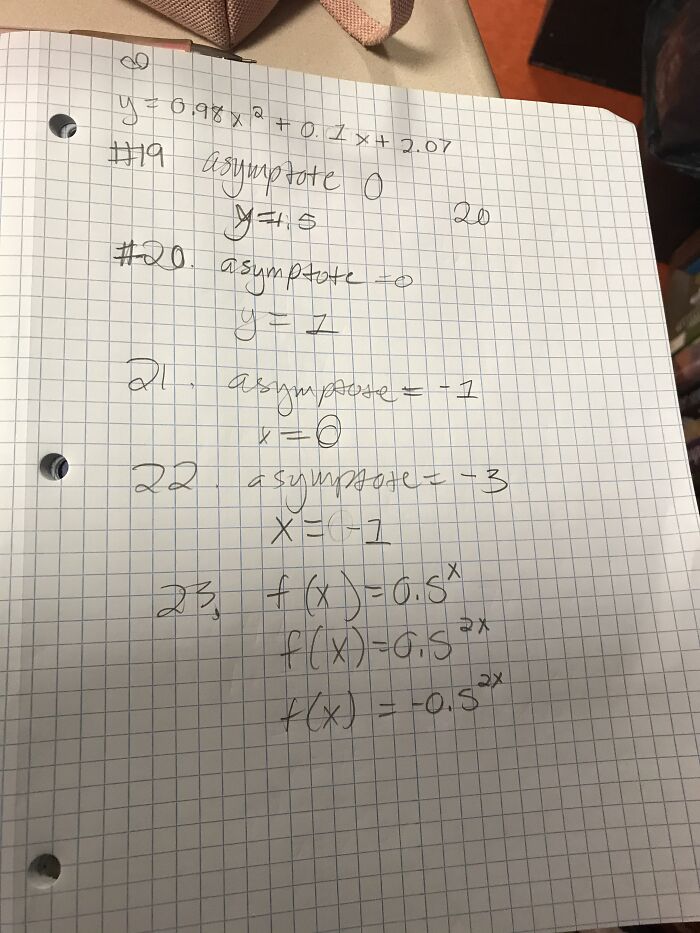 y = 0.98x² + 0.1x + 2.07
#19 asymptote 0
20
#20. asymptote = 0
y = 1
21. asymptote = -1
x = 0
22. asymptote = -3
x = -1
23. f(x) = 0.5^x
f(x) = 0.5^2x
f(x) = -0.5^2x